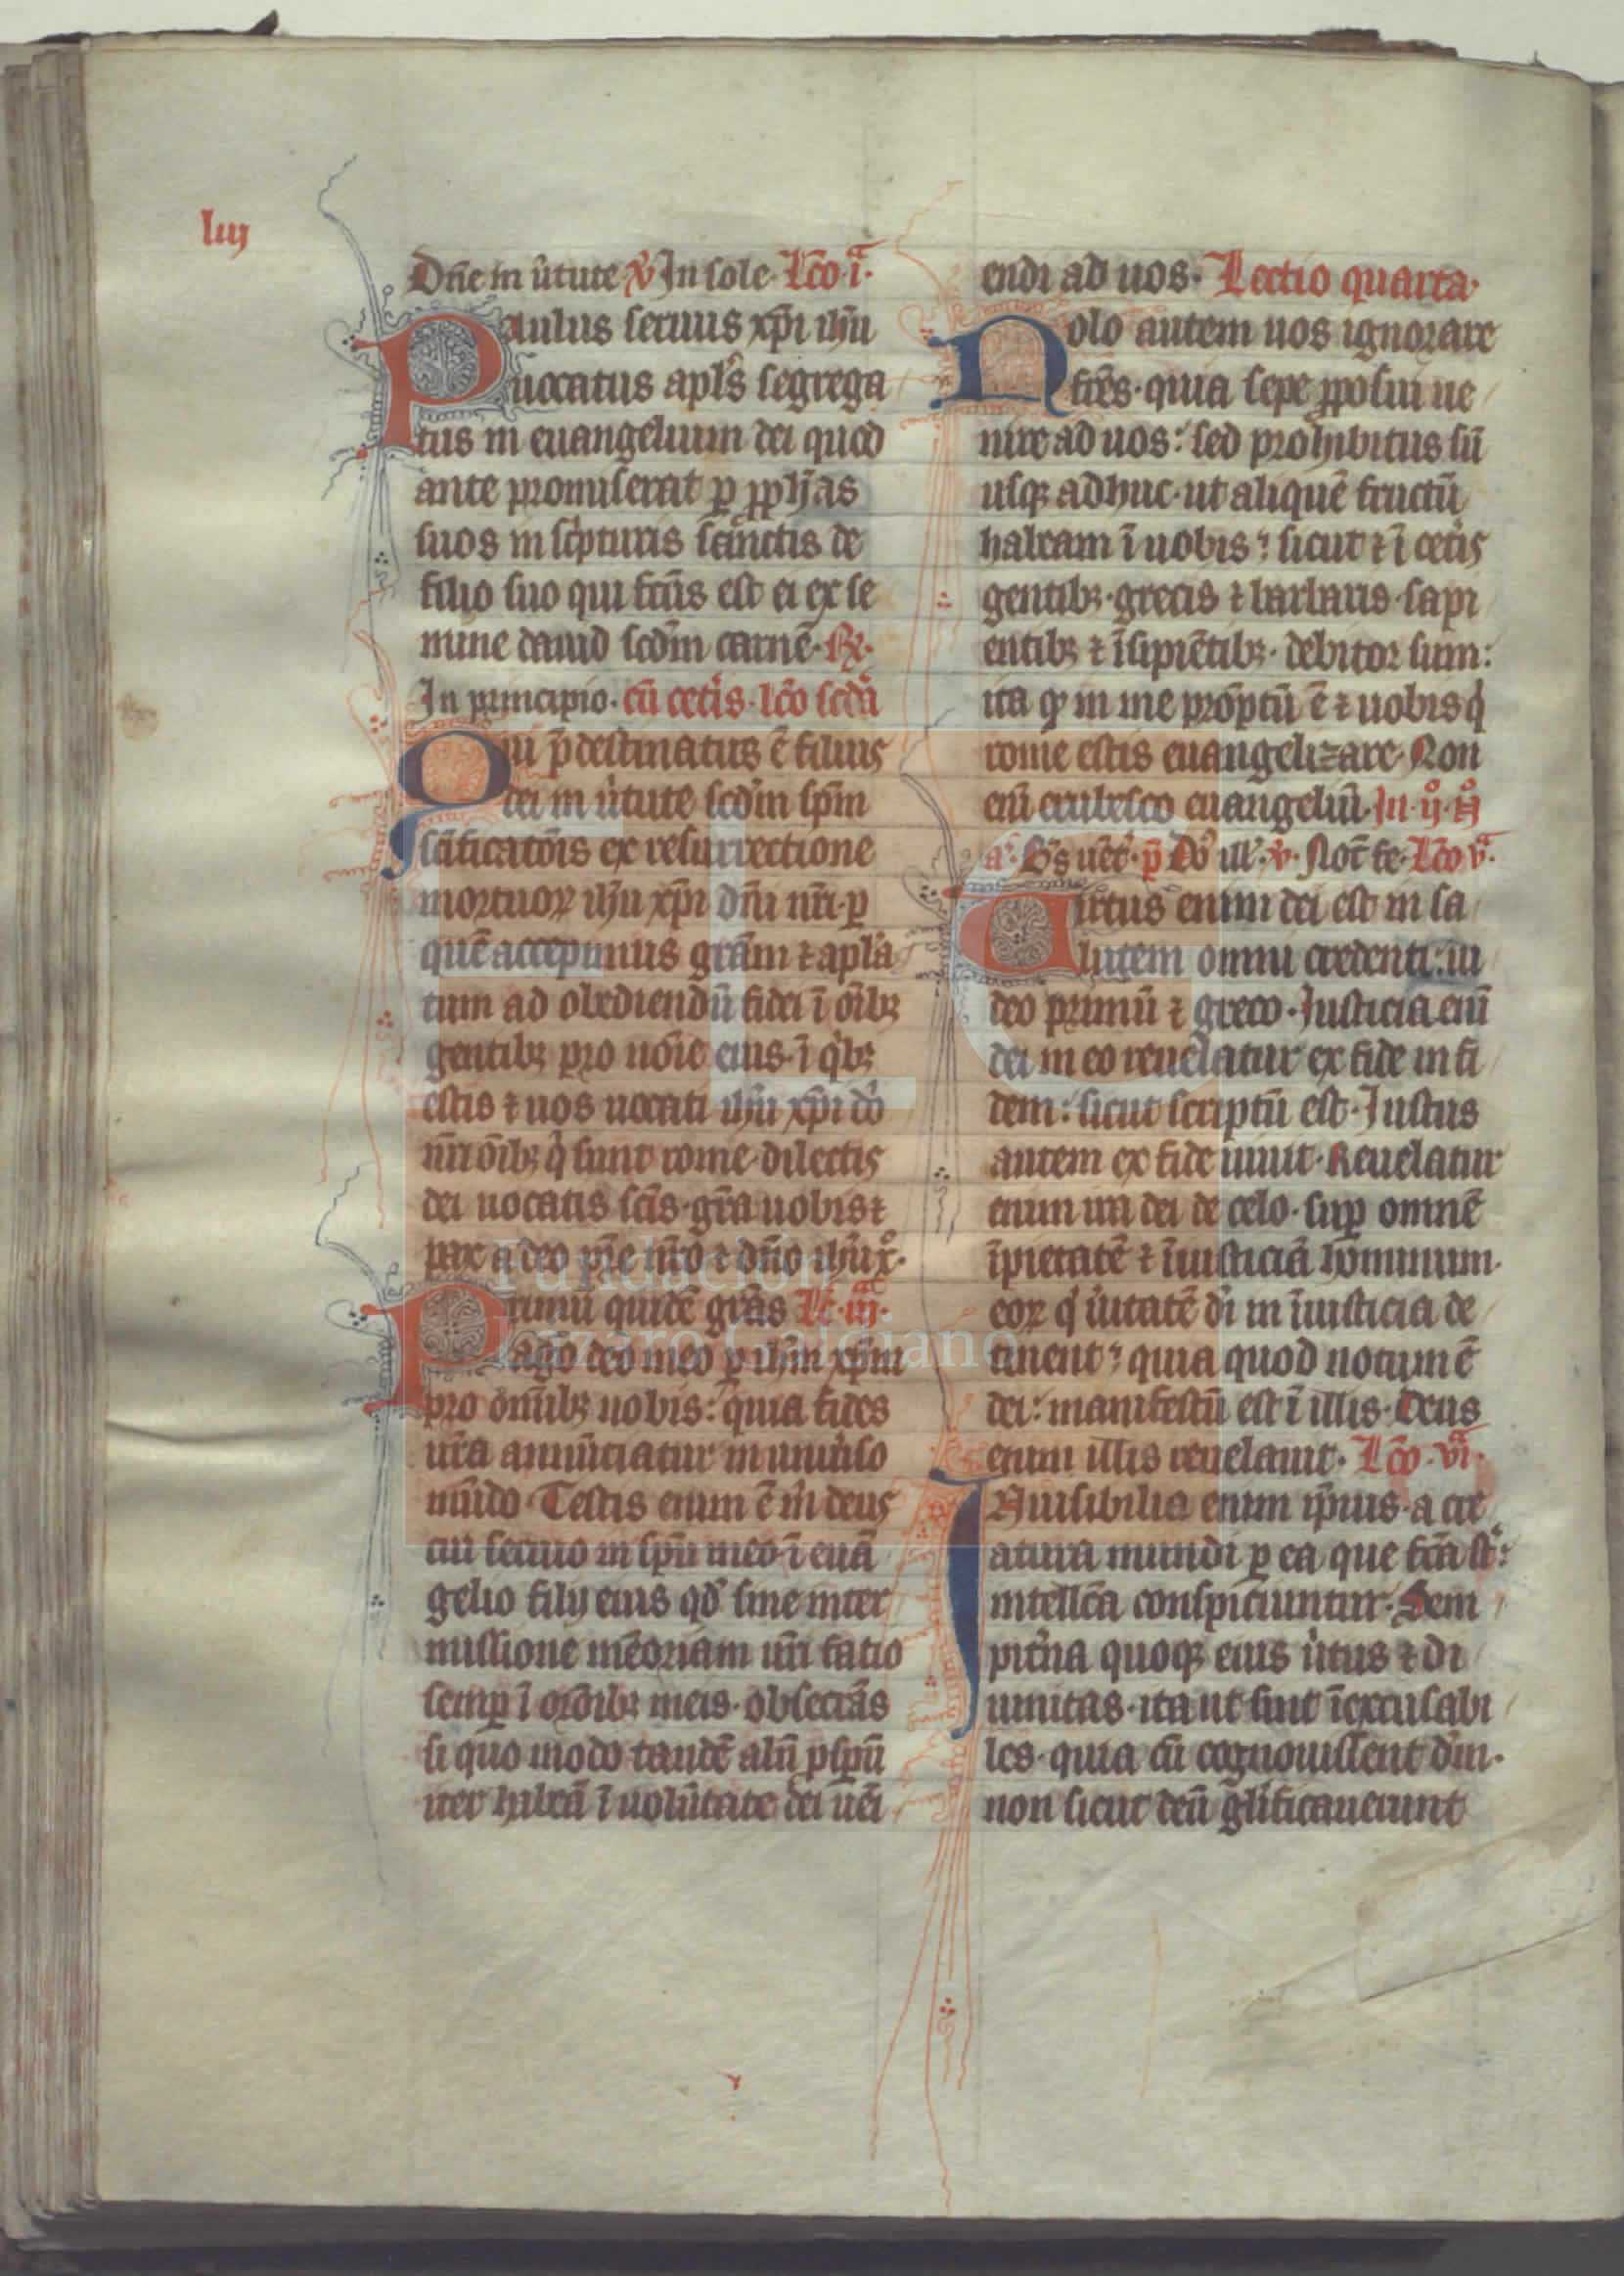 liij
Dn̄e in ûtute ℣ In sole. Lc̄o .i.ᵃ
Paulus seruus xp̄i ih̄u
uocatus apl̄s segrega
tus in euangelium dei quod
ante promiserat ꝑ ꝓph̄as
suos in sc̄pturis sanctis de
filio suo qui fc̄us est ei ex se
mine dauid scdm̄ carnē. ℟.
In principio. cū cet̄is. lc̄o scd̄a
Qui p̄destinatus ē filius
dei in ûtute scdm̄ sp̄m
sc̄ificatōis ex resurrectione
mortuoꝝ ih̄u xp̄i dn̄i nr̄i. ꝑ
quē accepimus gr̄am ⁊ apl̄a
tum ad obediendū fidei ī oīb⁊
gentib⁊ pro nōie eius. ī qⁱb⁊
estis ⁊ uos uocati ih̄u xp̄i dō
nr̄i oīb⁊ qⁱ sunt rome. dilectis
dei uocatis sc̄is. gr̄a uobis ⁊
pax a deo pr̄e nr̄o ⁊ dn̄o ih̄u x̊.
Primū quidē gr̄as Lc̄. iij.ᵃ
ago deo meo ꝑ ih̄m xp̄m
pro omīb⁊ uobis: quia fides
ur̄a annūciatur in uniûso
mūdo. Testis enim ē m̄ deus
cui seruio in sp̄u meo ī euā
gelio filij eius qd̄ sine inter
missione mēoriam ur̄i facio
semꝑ ī orōīb⁊ meis. obsecrās
si quo modo tandē aliq̄ ꝓspū
iter habeā ī uolūtate dei uēi
endi ad uos. Lectio quarta.
Nolo autem uos ignorare
fr̄es. quia sepe ꝓposui ue
nire ad uos: sed prohibitus sū
usqꝫ adhuc. ut aliquē fructū
habeam ī uobis: sicut ⁊ ī cet̄is
gentib⁊. grecis ⁊ barbaris. sapi
entib⁊ ⁊ īsipiētib⁊. debitor sum:
ita qꝫ in me prōptū ē ⁊ uobis qⁱ
rome estis euangelizare. Non
enī erubesco euangeliū. In .ij. n̊
aᵃ. uēt̄. p̄ Dō ill'. ℣. Not̄ fe. Lc̄o v.ᵃ
Uirtus enim dei est in sa
lutem omni credenti: iu
deo primū ⁊ greco. Justicia enī
dei in eo reuelatur ex fide in fi
dem: sicut scriptū est. Justus
autem ex fide uiuit. Reuelatur
enim ira dei de celo. suꝑ omnē
īpietatē ⁊ īiusticiā hominum.
eoꝝ qⁱ ûitatē dī in īiusticia de
tinent: quia quod notum ē
dei: manifestū est ī illis. Deus
enim illis reuelauit. Lc̄o. vi.ᵃ
Inuisibilia enim ip̄ius. a cre
atura mundi ꝑ ea que fc̄a st̄:
intellc̄a conspiciuntur. Sem
pit̄na quoqꝫ eius ûtus ⁊ di
uinitas. ita ut sint īexcusabi
les. quia cū cognouissent dm̄.
non sicut deū gl̄ificauerunt
Fundación
Lázaro Galdiano